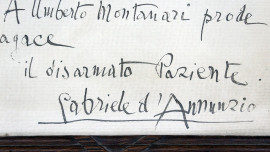 A Umberto Montanari prode
agace
il disarmato Paziente.
Gabriele d'Annunzio